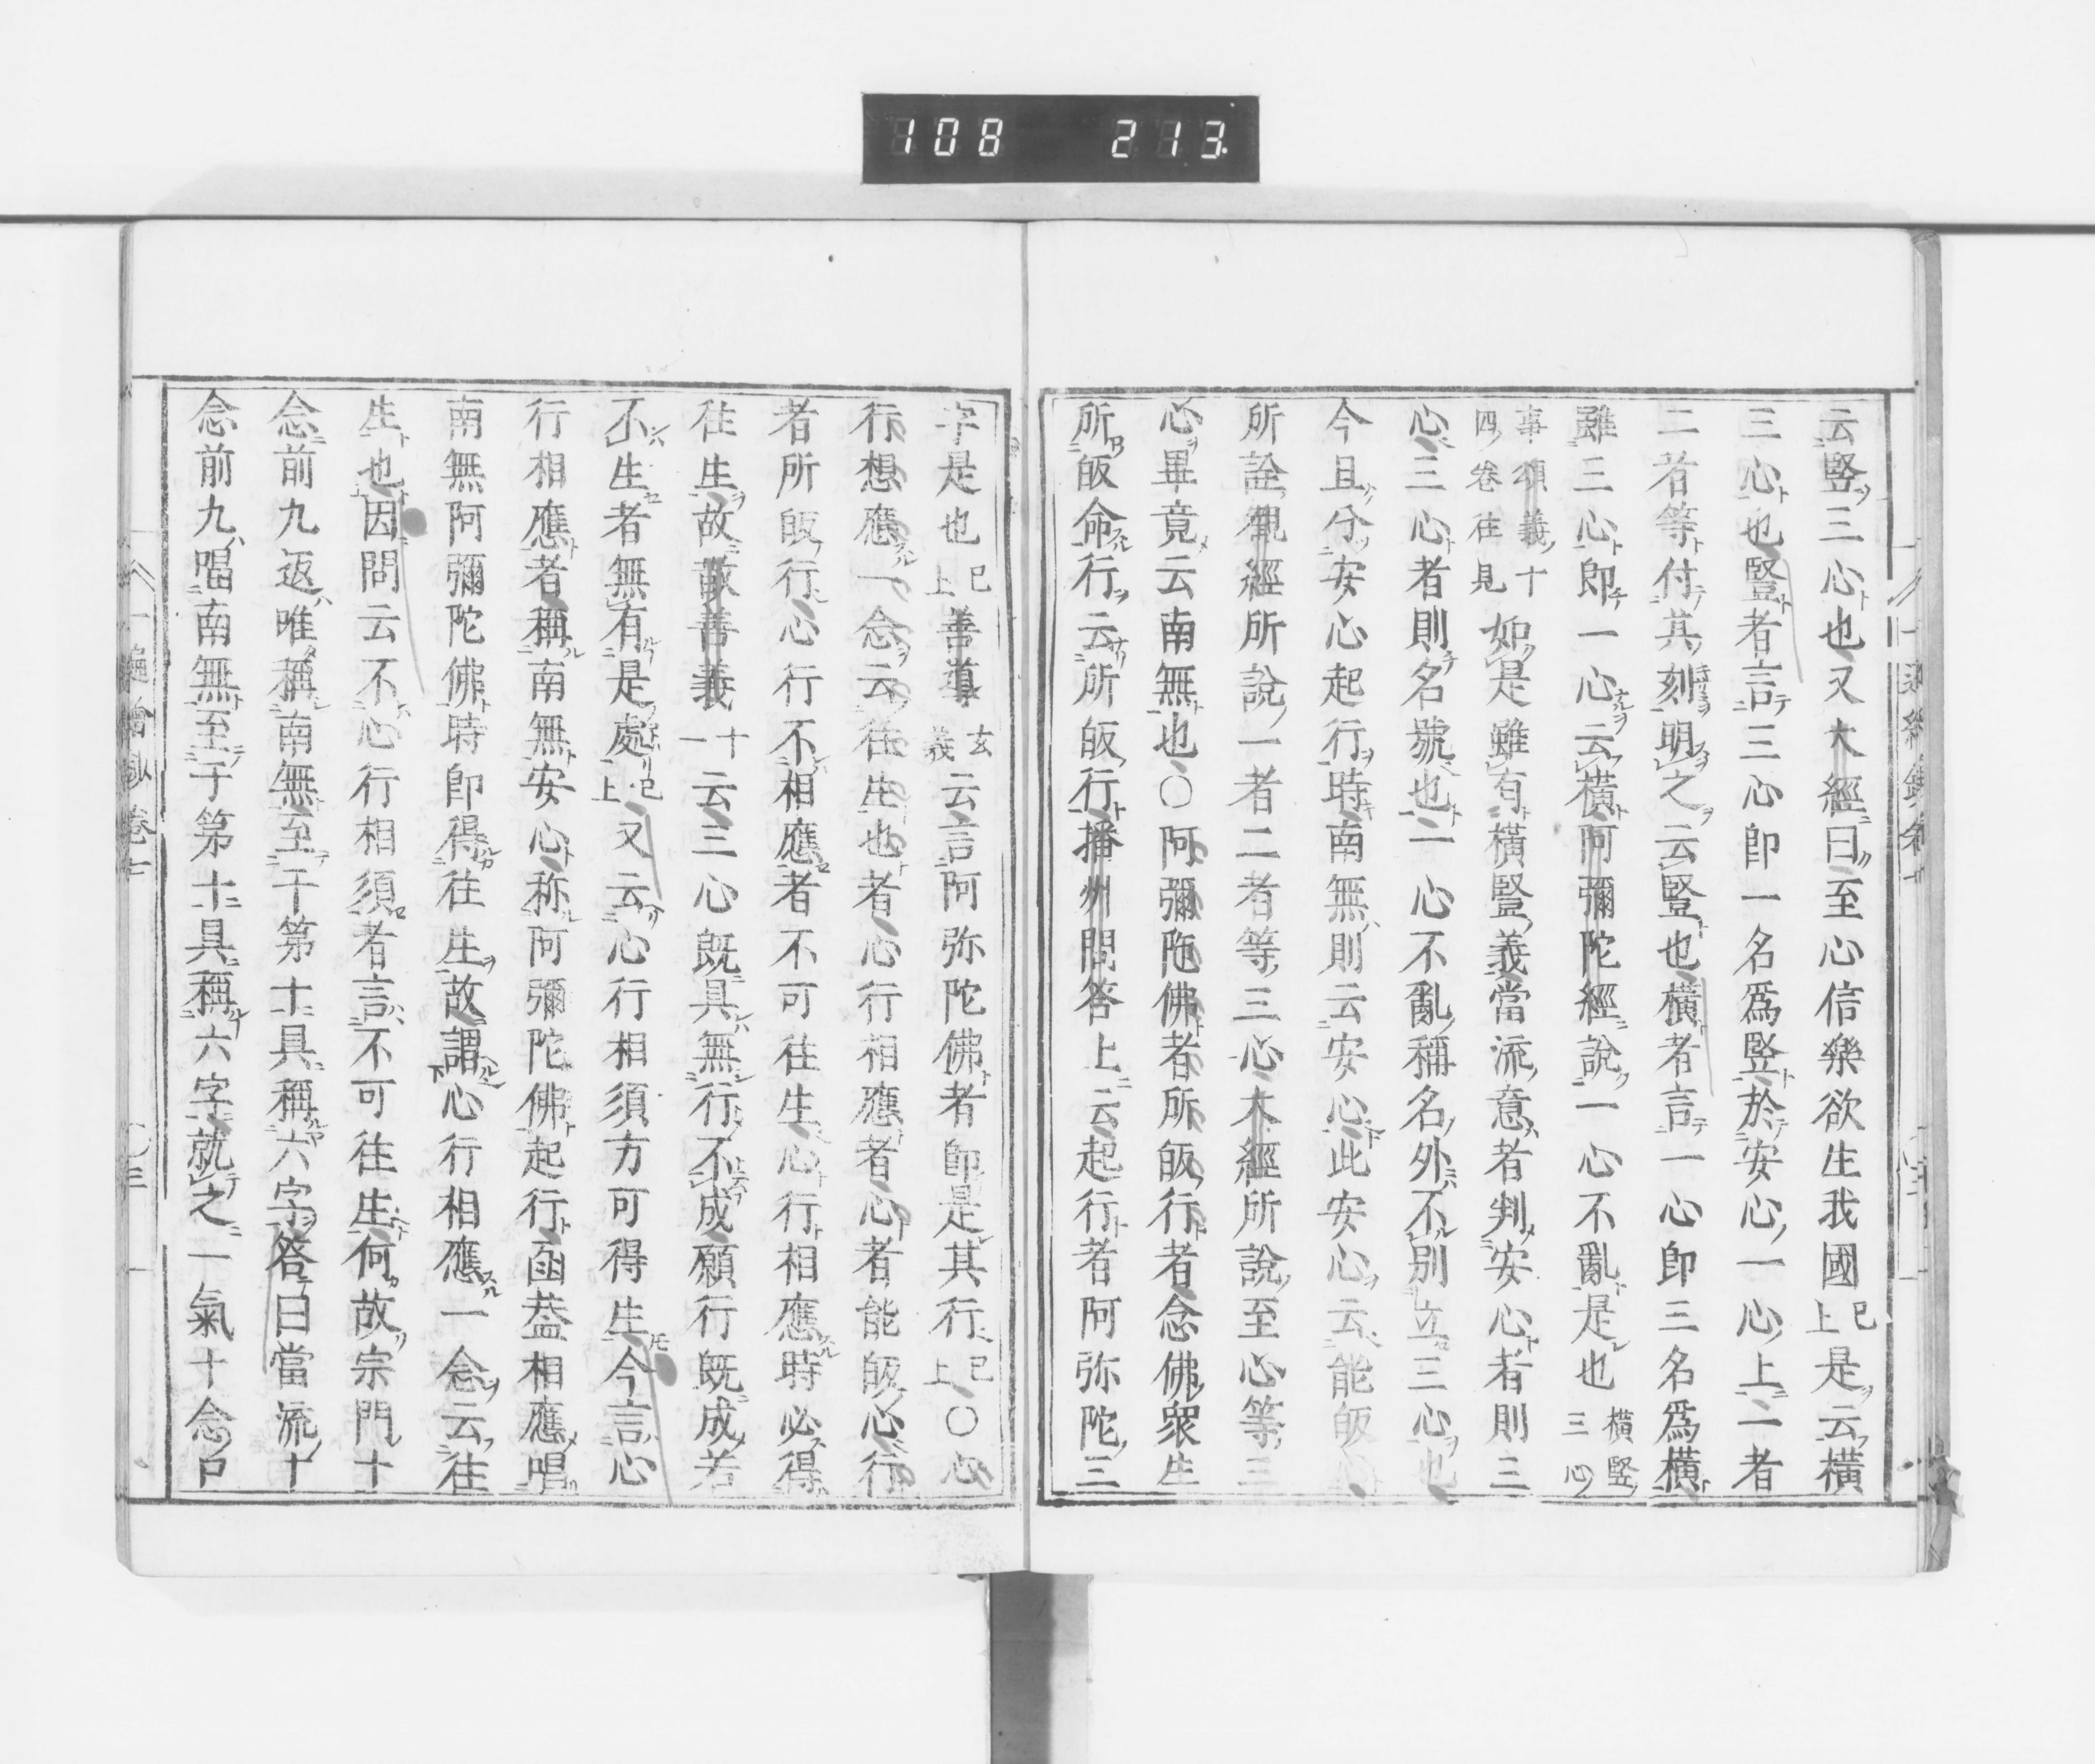 108 213
云竪三心也又大經曰至心信樂欲生我國已上是云橫
三心也竪者言三心即一名爲竪於安心一心上一者
二者等付其刻明之云竪也橫者言一心即三名爲橫
雖三心即一心云橫阿彌陀經說一心不亂是也橫竪三心
事頌義十四卷往見如是雖有橫竪義當流意者判安心者則三
心三心者則名號也一心不亂稱名外不別立三心也
今且分安心起行時南無則云安心此安心云能皈心
所詮觀經所說一者二者等三心大經所說至心等三
心畢竟云南無也〇阿彌陁佛者所皈行者念佛衆生
所皈命行云所皈行播州問答上云起行者阿弥陀三
字是也已上善導玄義云言阿弥陀佛者即是其行已上〇心
行想應一念云往生也者心行相應者心者能皈心行
者所皈行心行不相應者不可往生心行相應時必得
往生故故善義十一云三心既具無行不成願行既成若
不生者無有是處已上又云心行相須方可得生今言心
行相應者稱南無安心称阿彌陀佛起行函葢相應唱
南無阿彌陀佛時即得往生故謂心行相應一念云往
生也因問云不心行相須者言不可往生何故宗門十
念前九返唯稱南無至于第十具稱六字答曰當流十
念前九唱南無至于第十具稱六字就之一氣十念戸